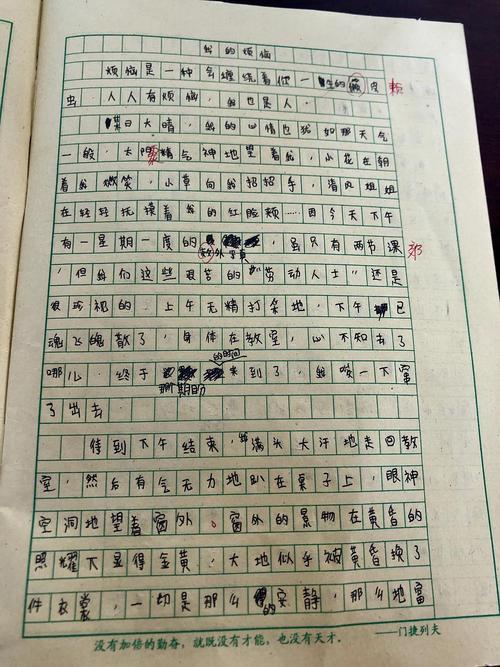 我的烦恼
烦恼是一种会缠绕着他一生的癞皮 赖
虫，人人有烦恼，我也是人。
某日大晴，我的心情也犹如那天气
一般，太阳精气神地望着我，小花在朝
着我微笑，小草向我招招手，清风姐姐
在轻轻抚摸着我的红脸颊……因今天下午
有一星期一度的，虽只有两节课 郊
外写真
，但我们这些艰苦的"劳动人士"还是
很珍视的，上午无精打采地，下午已
魂飞魄散了，身体在教室，心不知去了
哪儿。终于那期盼的时间来到了，我唆一下窜
了出去。
待到下午结束，我满头大汗地走回教
室，然后有气无力地趴在桌子上，眼神
空洞地望着窗外。窗外的景物在黄昏的
照耀下显得金黄，大地似乎被黄昏换了
件衣裳，一切是那么的安静，那么地富
没有加倍的勤奋，就既没有才能，也没有天才。 ——门捷列夫